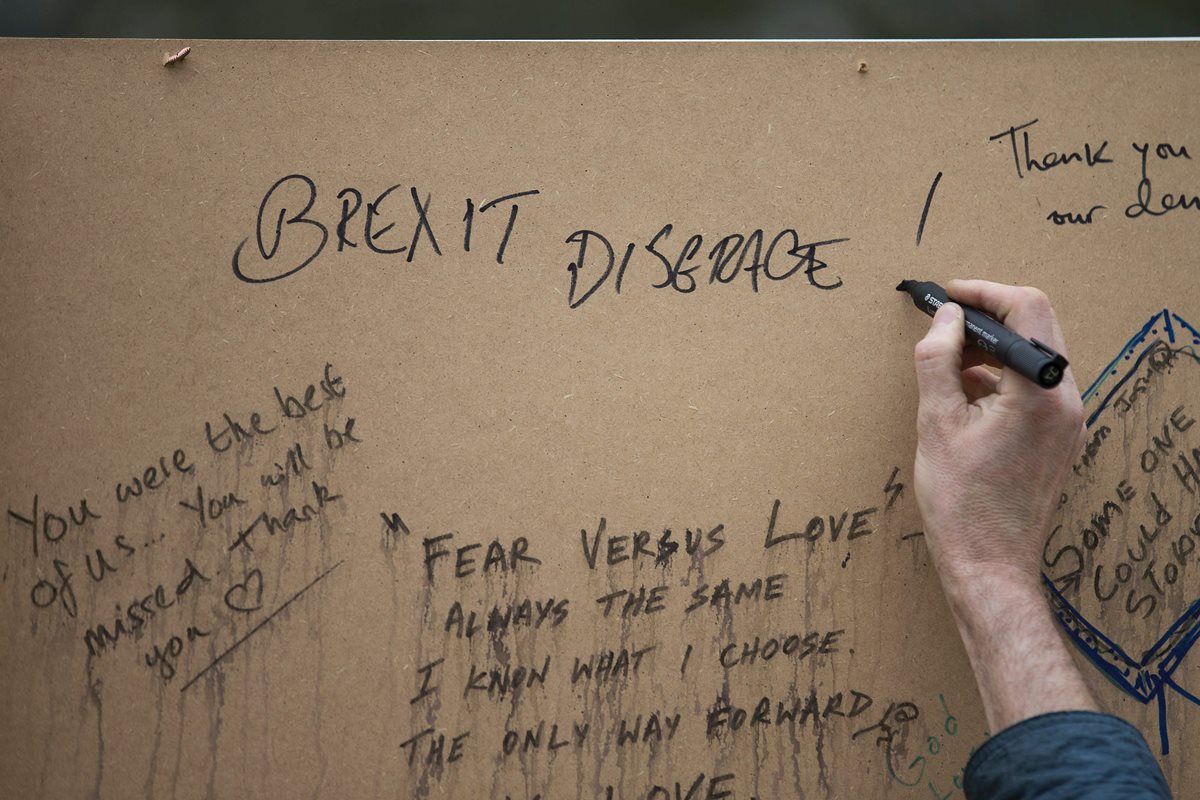 BREXIT DISGRACE !
Thank you
our dem
You were the best
of us... You will be
missed. Thank
you ♡
"FEAR VERSUS LOVE" –
ALWAYS THE SAME
I KNOW WHAT I CHOOSE.
THE ONLY WAY FORWARD
LOVE.
SOME ONE
COULD HA
STOPP
8 STAE
permanent marker
God